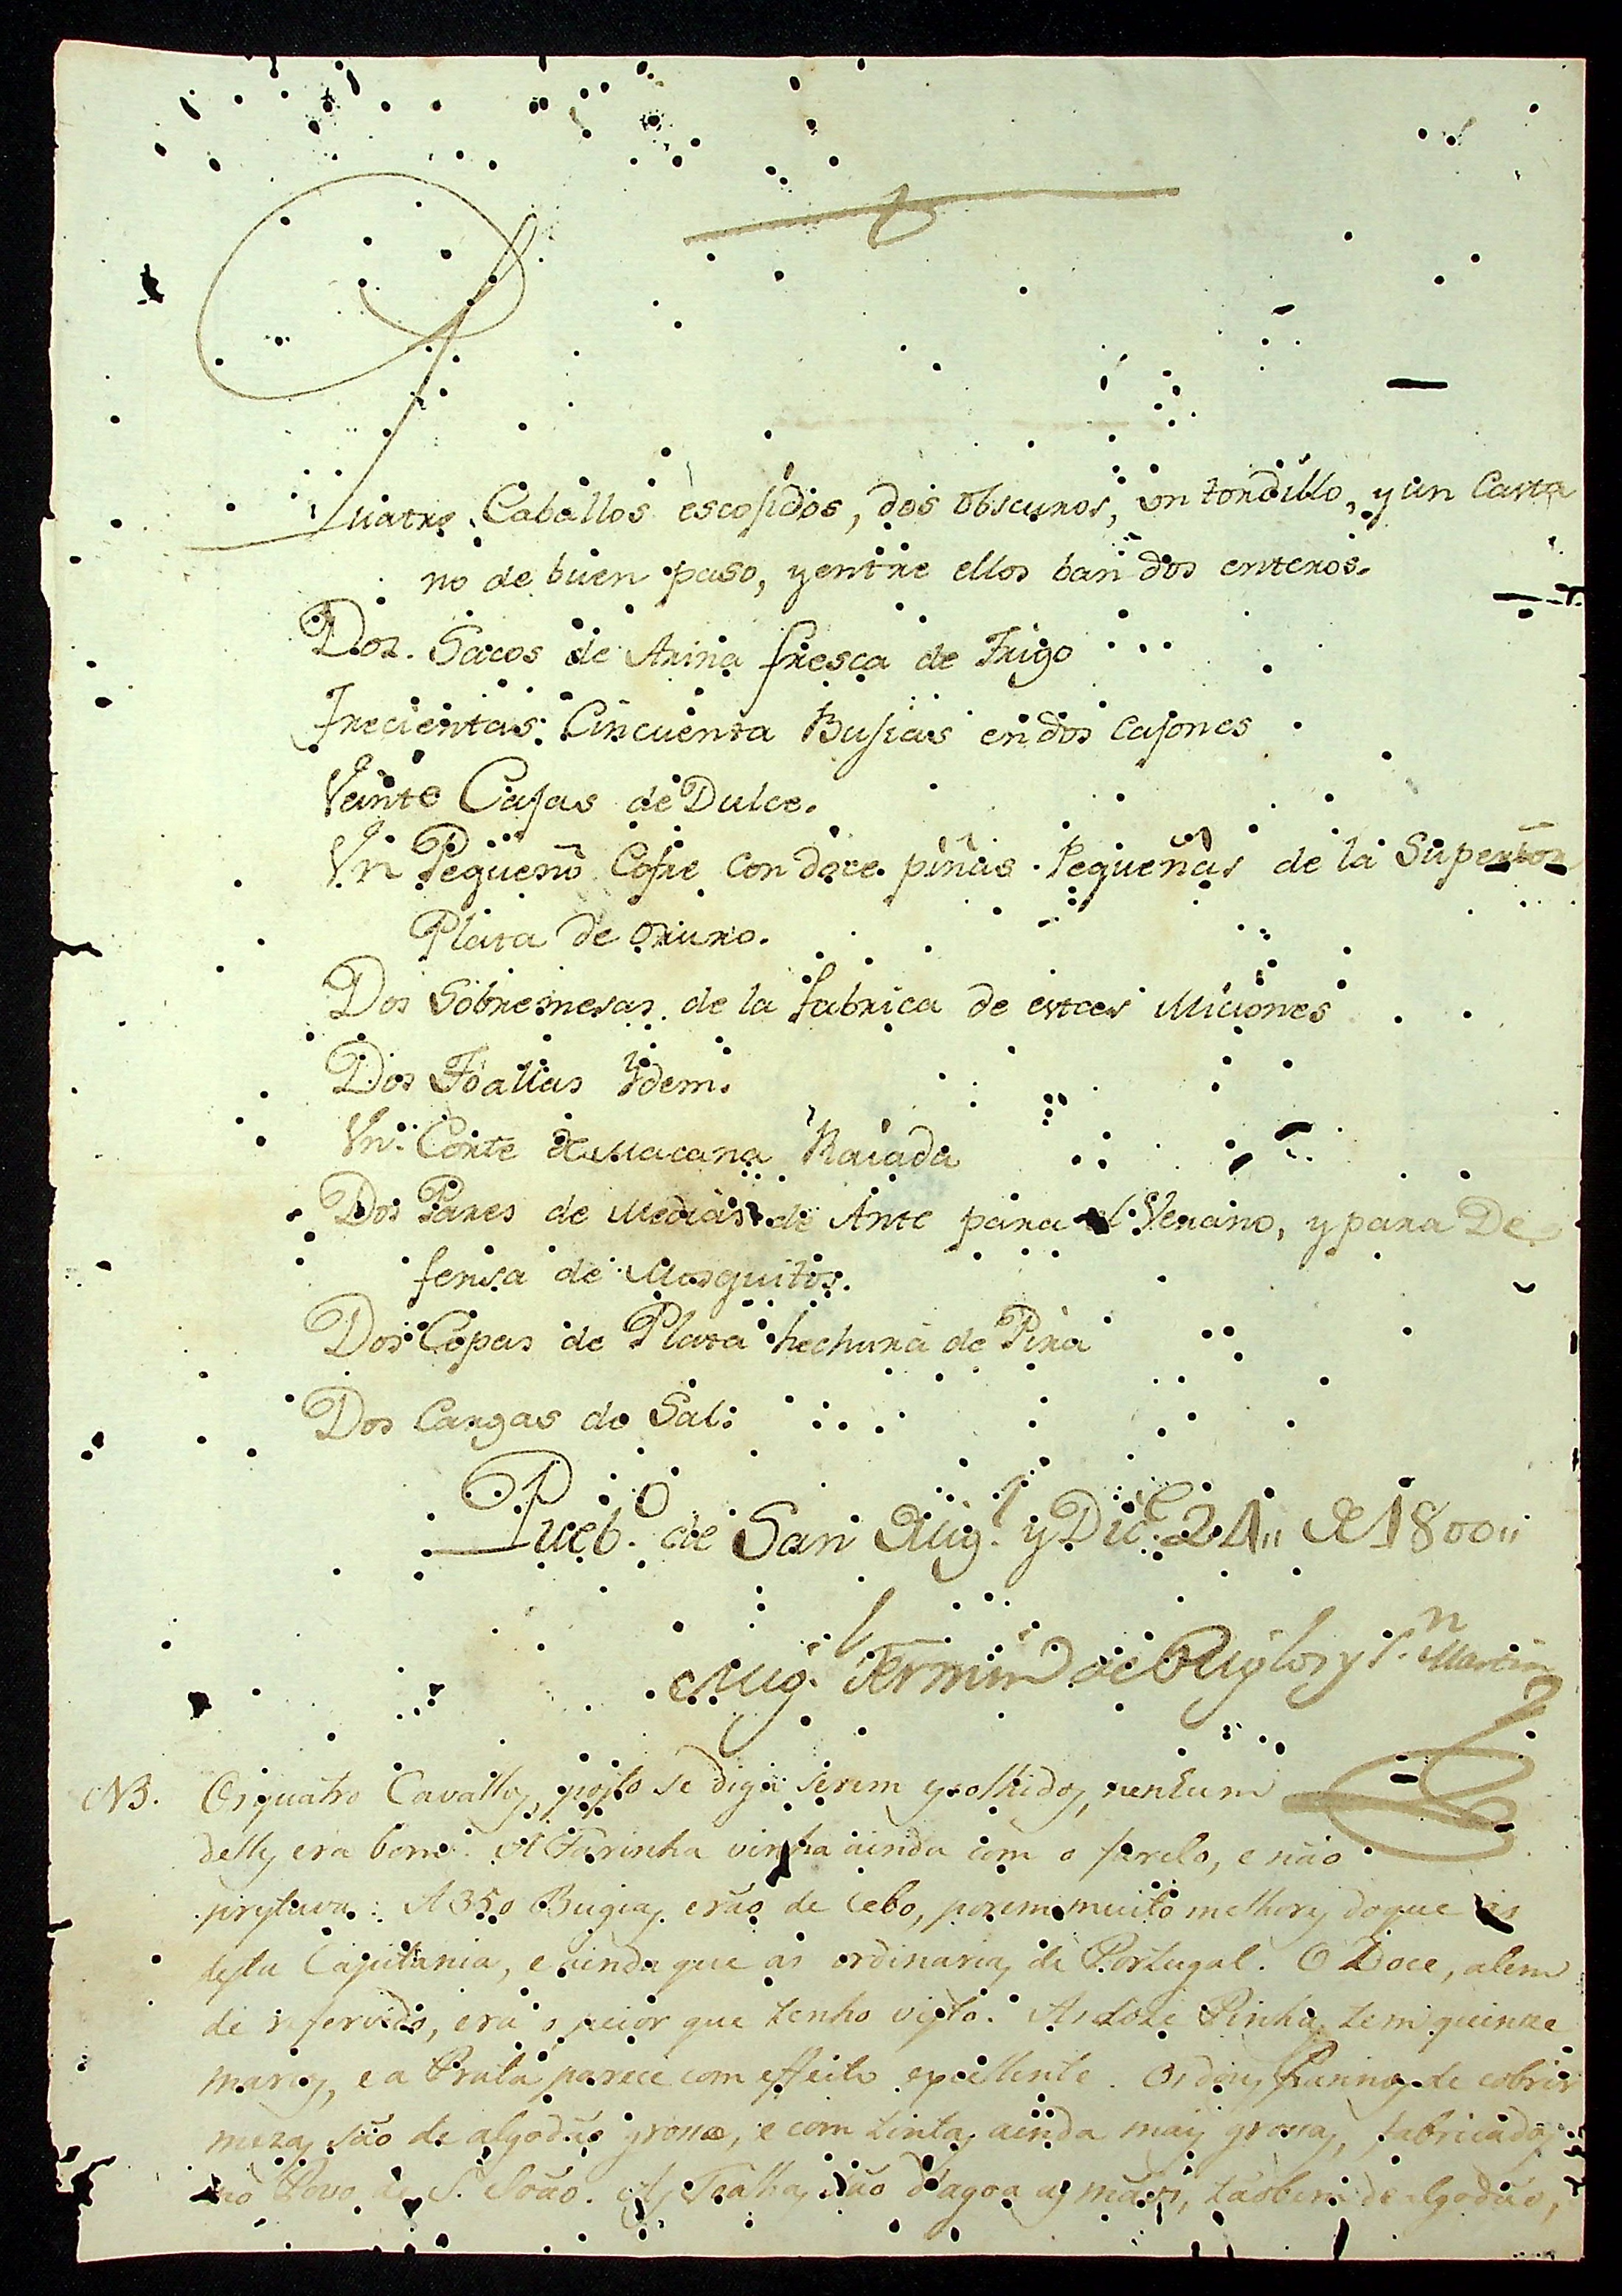 Quatro Caballos escojidos, dos obscuros, un tordillo, y un Casta
no de buen paso, y entre ellos ban dos enteros.
Dos Sacos de Arina fresca de Trigo
Trecientas Cincuenta Bujias en dos cajones
Veinte Cajas de Dulce.
Vn Pequeño Cofre con doce piñas Pequeñas de la Superior
Plata de oruro.
Dos Sobremesas de la fabrica de estos Miciones
Dos Toallas Ydem.
Vn Corte de Macana Raiada
Dos Pares de Medias de Ante para el Verano, y para De
fensa de Mosquitos.
Dos Copas de Plata hechura de Pina
Dos Cargas de Sal:
Pueb.º de San Mig.l y Dic.e 24,, de 1800,,
Mig.l Fermin de y S.n Martin
NB. Os quatro Cavallos, posto se diga serem escolhidos, nenhum
delles era bom. A Farinha vinha ainda com o farelo, e não
prestava: A 350 Bugias erão de Cebo, porem muito melhores do que as
desta Capitania, e ainda que as ordinarias de Portugal. O Doce, alem
de refervido, era o peior que tenho visto. As doze Pinhas tem quinze
marcos, e a Prata parece com effeito excellente. Os dous Pannos de cobrir
mezas são de algodão grosso, e com tintas ainda mais grossas, fabricados
no Povo de S. João. As Toalhas são d'agoa as mãos, tãobem de algodão,